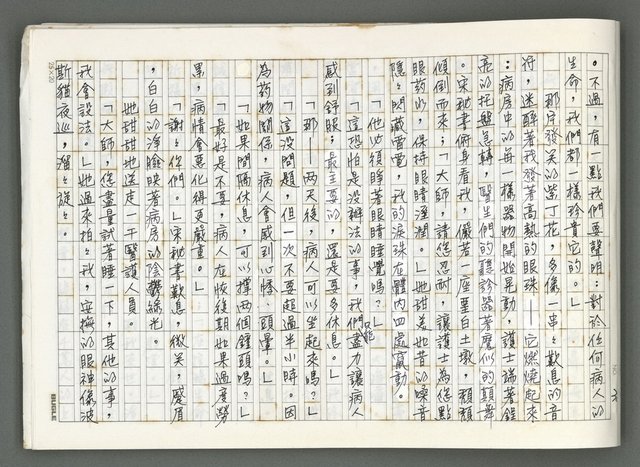 。不過,有一點我們要聲明:對於任何病人的
生命,我們都一樣珍貴它的。」
那序發笑的紫丁花,多像一串々歎息的音
符,迷醉著我發著高熱的眼珠——它燃燒起來
:病房中的每一樣器物開始晃動,護士端著鋁
亮的托盤急轉,醫生們的聽診器著魔似的顛舞
。宋秘書俯身看我,儼若一座堊白土墩,頹頹
傾倒而來:「大師,請您忍耐,讓護士為您點
眼药水,保持眼睛溼潤。」她甜美如昔的嗓音
隱々閃藏雷電,我的淚珠在體內四處竄動。
「他必須睜著眼睛睡覺嗎?」
「這恐怕是沒辦法的事,我們只能盡力讓病人
感到舒服;最主要的,還是要多休息。」
「那——兩天後,病人可以坐起來嗎?」
「這沒問題,但一次不要超過半小時。因
為药物關係,病人會感到心悸、頭暈。」
「如果間隔休息,可以撐兩個鐘頭嗎?」
「最好是不要,病人在恢復期如果過度勞
累,病情會惡化得更嚴重。」
「謝々你們。」宋秘書歎息,微笑,蹙眉
,白白的淨臉映著病房的陰鬱綠光。
她甜甜地送走一干醫護人員。
「大師,您盡量試著睡一下,其他的事,
我會設法。」她過來拍々我,安撫的眼神像波
斯貓夜巡,溜々旋々。
25×20
BUGLE